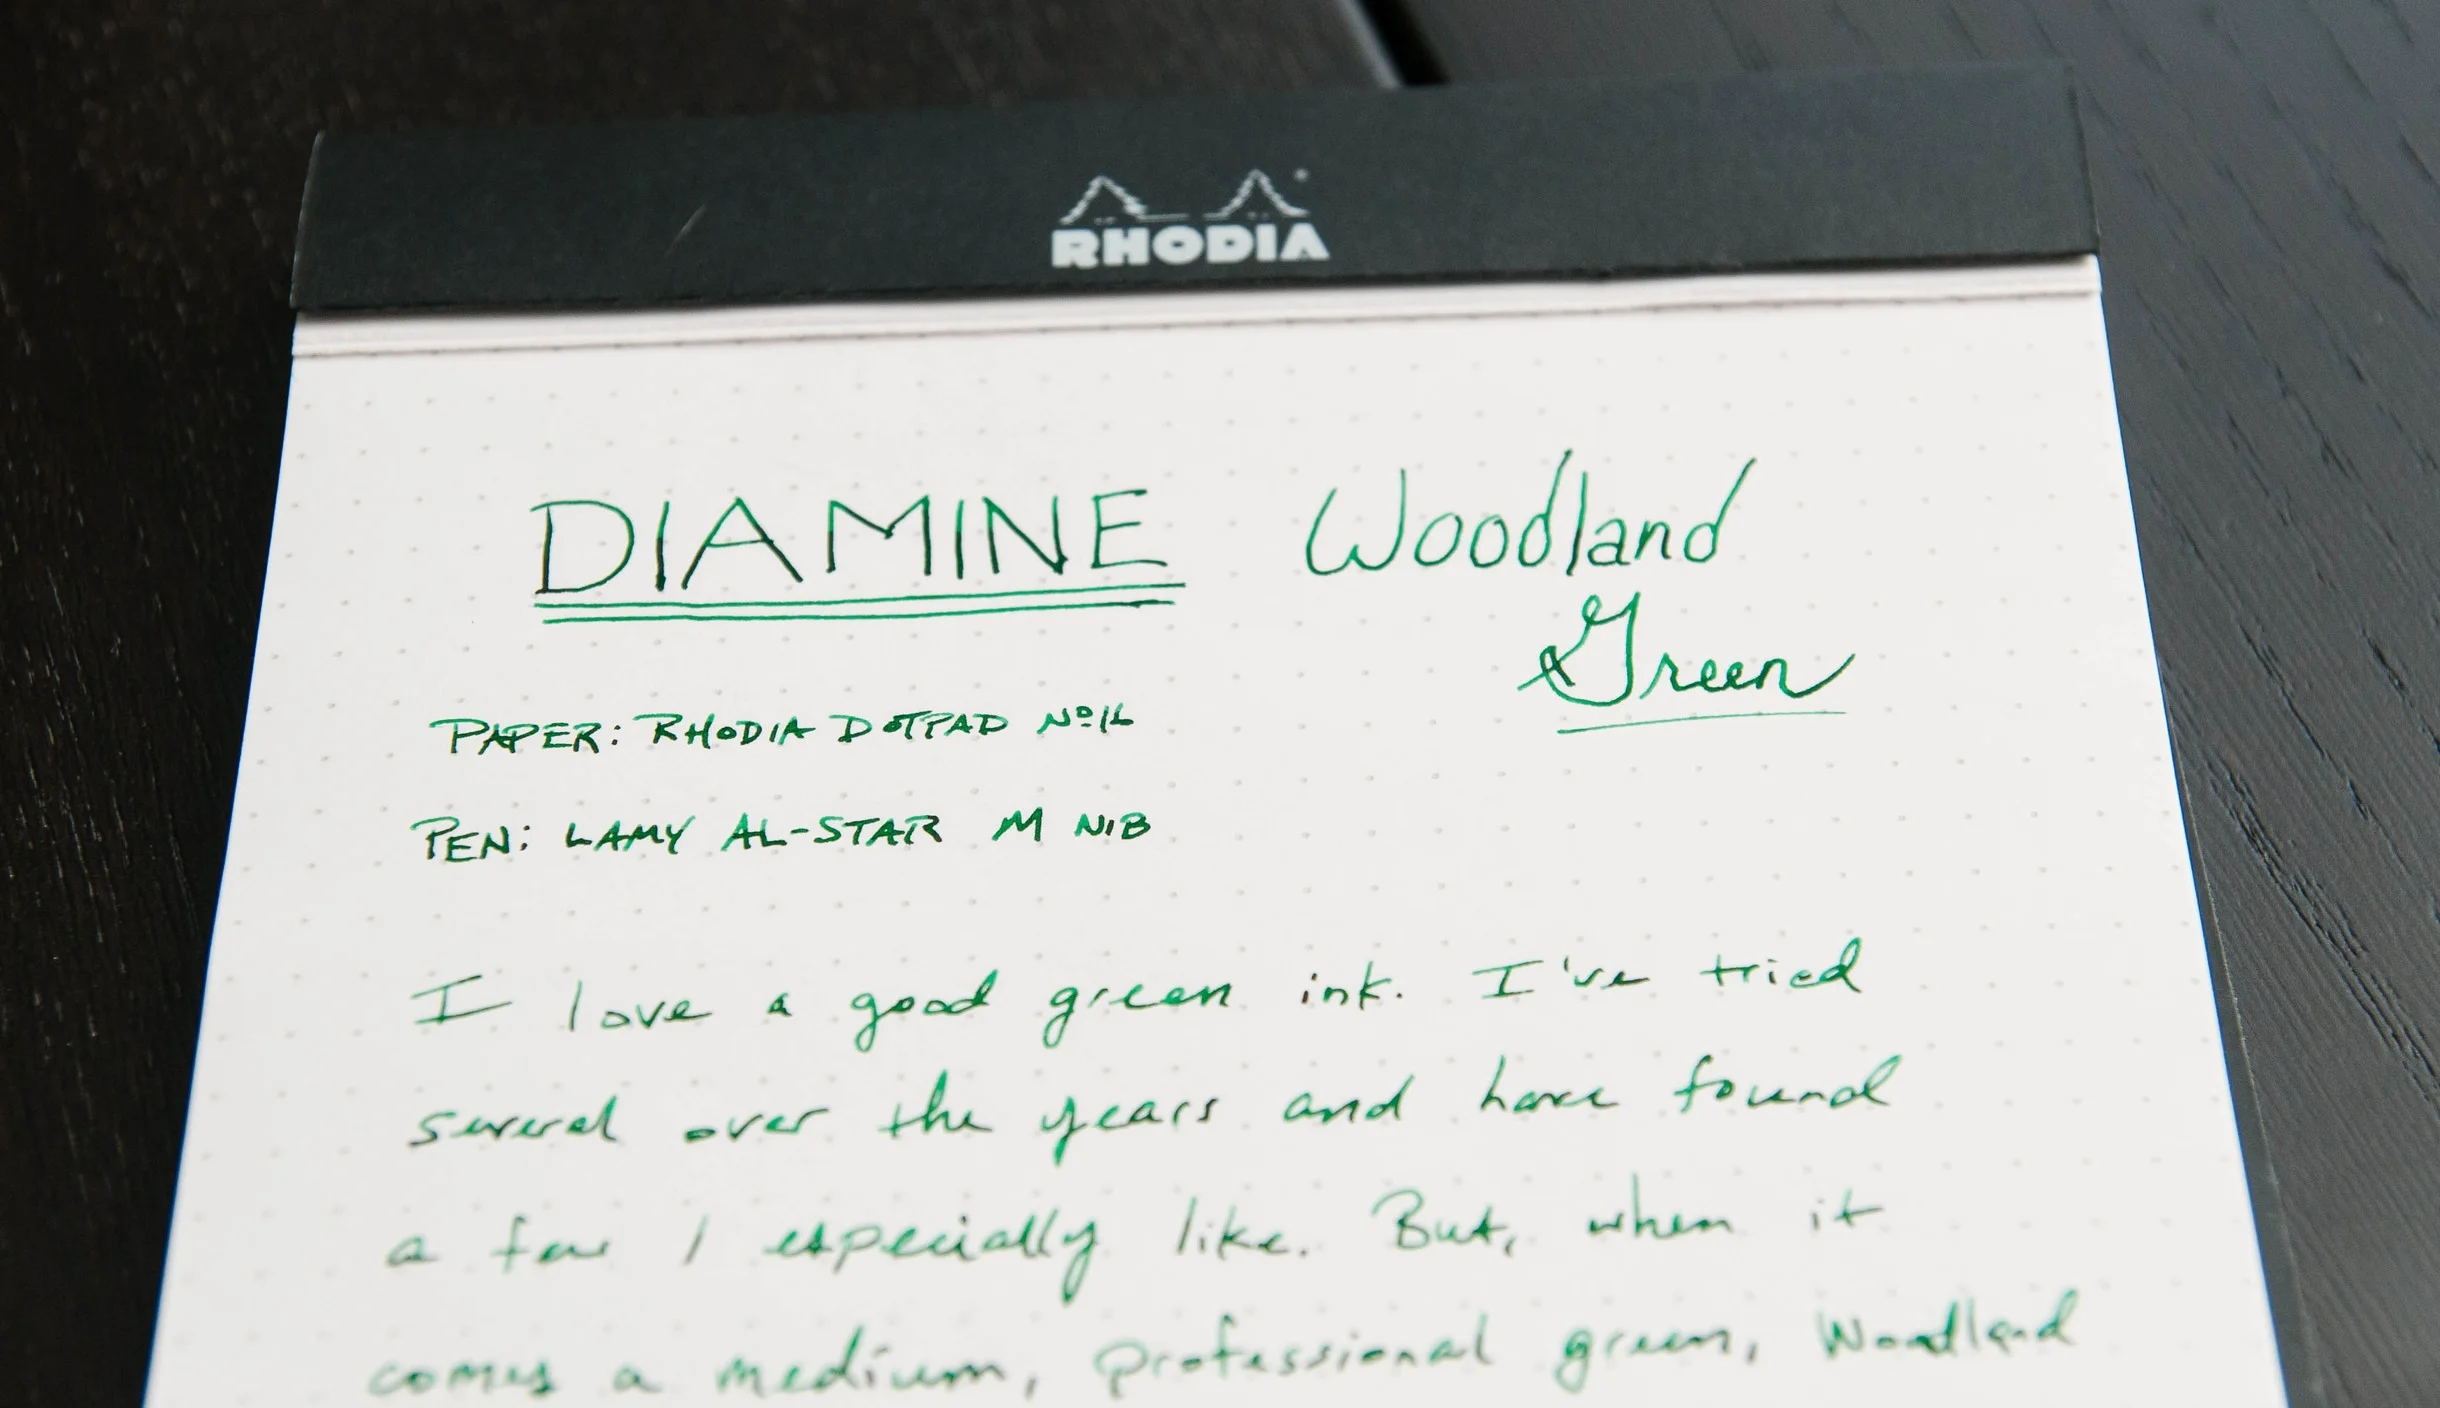 RHODIA
DIAMINE Woodland
Green
PAPER: RHODIA DOTPAD Nº16
PEN: LAMY AL-STAR M NIB
I love a good green ink. I've tried
several over the years and have found
a few I especially like. But, when it
comes a medium, professional green, Woodland